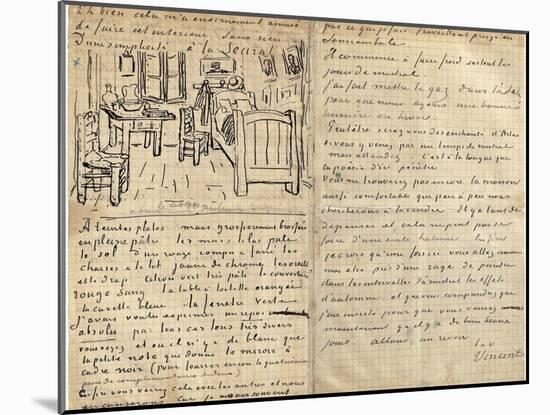 Eh bien cela m'a enormement amusé
de faire cet interieur sans rien
D'une simplicité à la Seurat
A teintes plates mais grossierement brossées
en pleine pâte les murs lilas pale
le sol d'un rouge rompu & fané les
chaises & le lit jaune de chrome les oreillers
et le drap citron vert très pâle la couverture
rouge sang la table à toilette orangée
la cuvette bleue la fenetre verte
J'avais voulu exprimer un repos
absolu par tous ces tons très divers
vous voyez et où il n'y a de blanc que
la petite note que donne le miroir à
cadre noir (pour fourrer encore la quatrième
paire de complementaires dedans)
Enfin vous verrez cela avec les autres et nous
en causerons car je ne sais souvent
pas ce que je fais travaillant presqu'en
somnambule
Il commence à faire froid surtout les
jours de mistral
J'ai fait mettre le gaz dans
pour que nous ayons une bonne
lumiere en hiver
Peutêtre serez vous desenchanté d'Arles
si vous y venez par un temps de mistral
mais attendez.. C'est à la longue que
la poésie d'ici pénètre
Vous ne trouverez pas encore la maison
aussi comfortable que peu à peu nous
chercherons à la rendre. Il y a tant de
depenses et cela ne peut pas se
faire d'une seule haleine Enfin
je crois qu'une fois ici vous allez comme
moi être pris d'une rage de peindre
dans les intervalles du mistral les effets
d'automne et que vous comprendrez que
j'aie insisté pour que vous veniez
maintenant qu'il y a de bien beaux
jours allons au revoir
t à v
Vincent